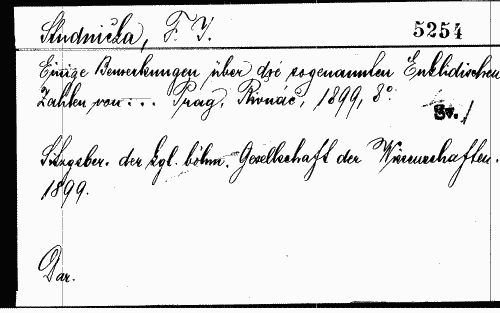 Studnička, F. J. 5254
Einige Bemerkungen über die sogenannten Euklidischen
Zahlen von ... Prag, Řivnáč, 1899, 8°
Br. /
Sitzgsber. der kgl. böhm. Gesellschaft der Wissenschaften.
1899.
Dar.